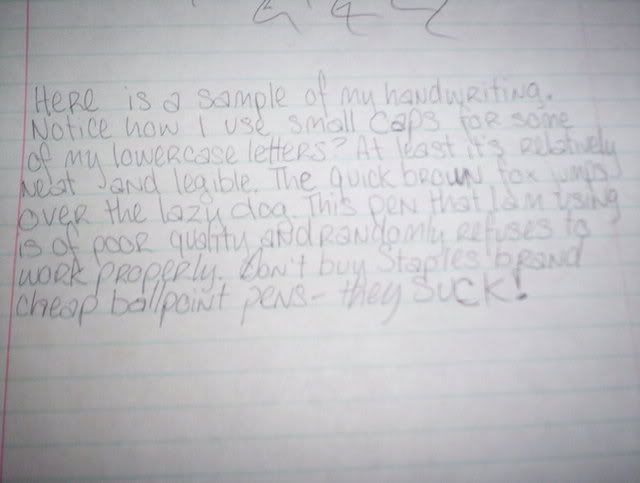 Here is a sample of my handwriting.
Notice how I use small caps for some
of my lowercase letters? At least it's relatively
neat and legible. The quick brown fox jumps
over the lazy dog. This pen that I am using
is of poor quality and randomly refuses to
work properly. Don't buy Staples brand
cheap ballpoint pens - they SUCK!